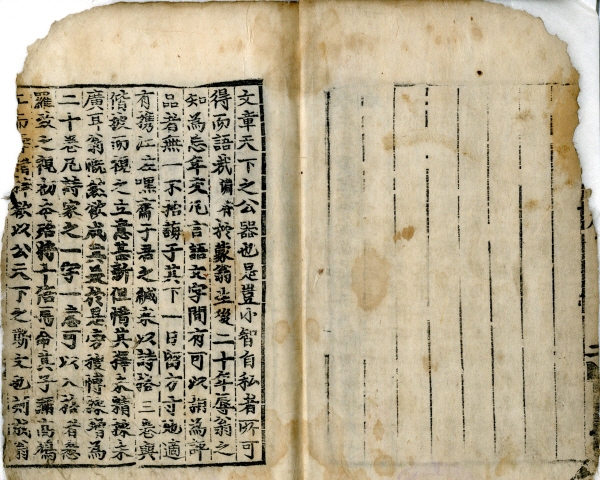 文章天下之公器也是豈小智自私者所可
得而語哉於蒙翁生後二十年辱翁之
知為忘年交凡言語文字間有可以詔為評
品者無一不招誨于其下一日留方寸地適
有携江左嘿齋于君之緘來以詩格三卷與
偕披而視之立意甚新但惜其擇未精採未
廣耳翁慨然欲成其美於是旁搜博採增為
二十卷凡詩家之一字一意可以入格者悉
羅致之視初本殆將十倍焉命其子彌高
以公天下之斯文也刻成翁